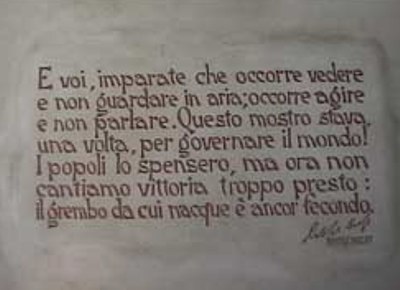 E voi, imparate che occorre vedere
e non guardare in aria; occorre agire
e non parlare. Questo mostro stava,
una volta, per governare il mondo!
I popoli lo spensero, ma ora non
cantiamo vittoria troppo presto:
il grembo da cui nacque è ancor fecondo.